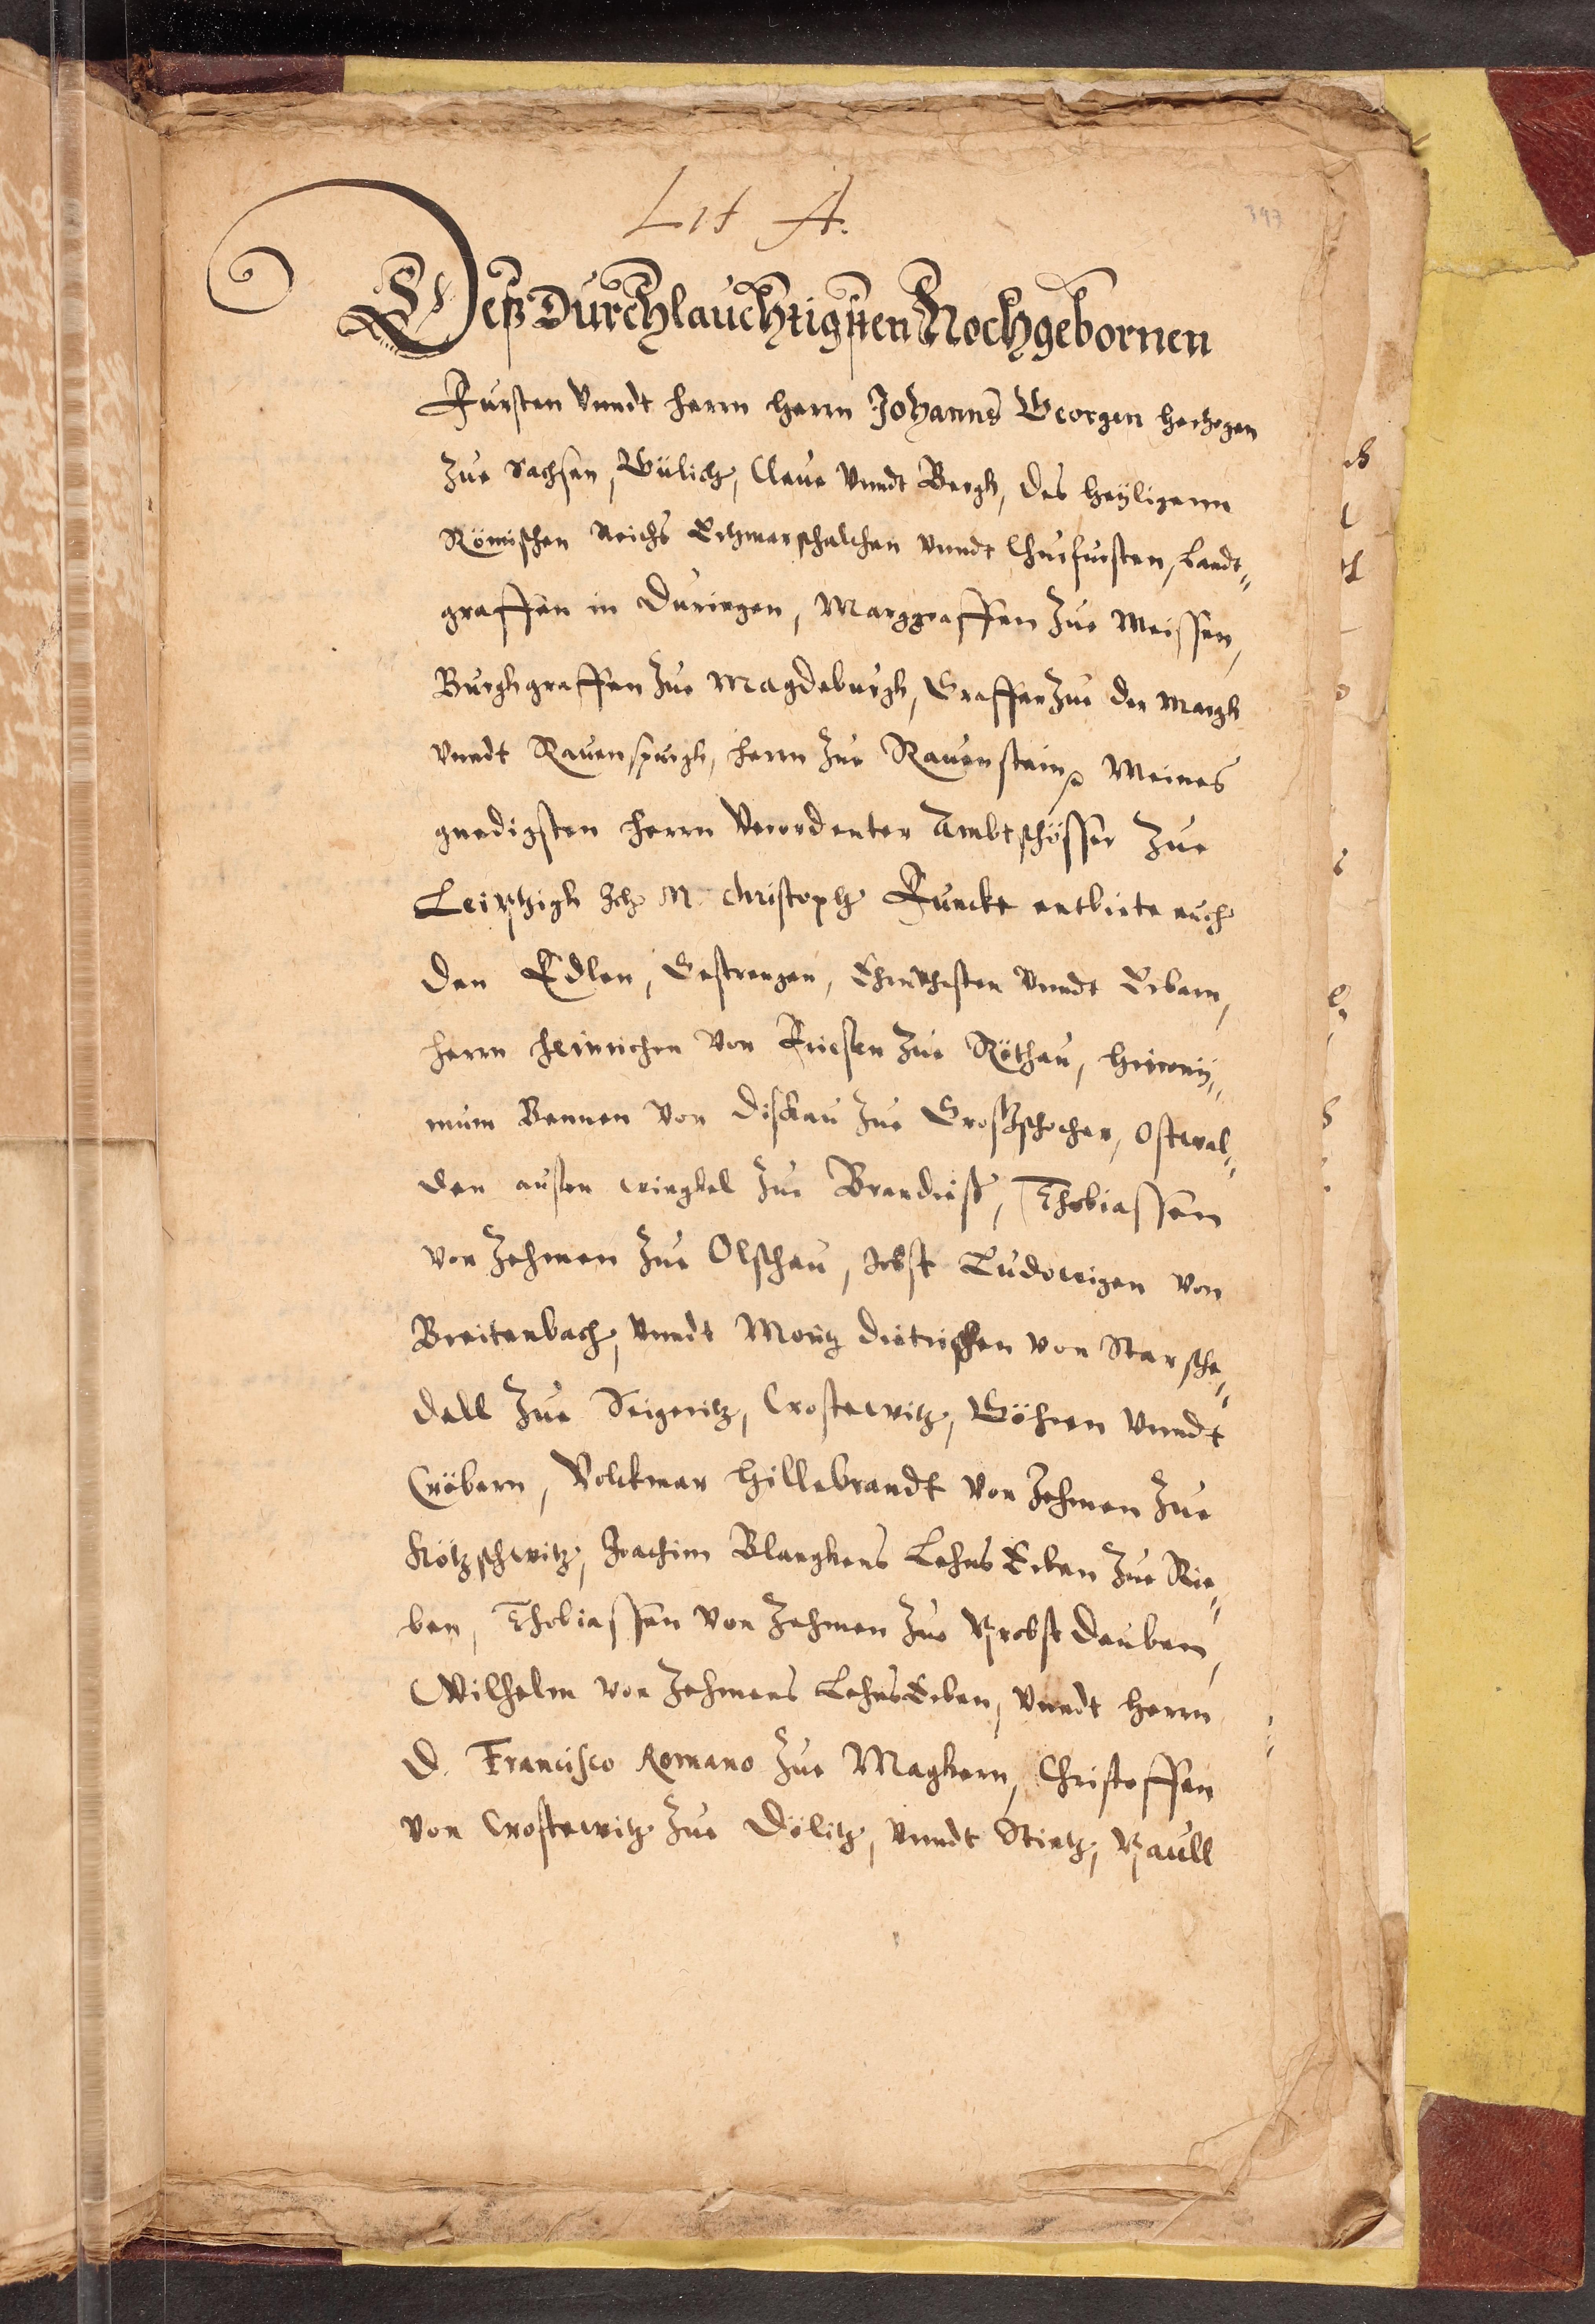 Lit A.
397
Deß Durchlauchtigsten Hochgebornen
Fursten vnndt herrn herrn Johanns Georgen hertzogen
zue Sachsen, Gülich, Cleue vnndt Bergk, des heyligenn
Römischen Reichs Ertzmarschalchen vnndt Churfursten, Landt„
graffen in Duringen, Marggraffen zue Meissen,
Burgkgraffen zue Magdeburgk, Graffen zue der Margk
vnndt Rauenspurgk, herrn zue Rauenstein Meines
gnedigsten herrn Verordenter Ambtschösser zue
Leiptzigk Ich M. Christoph Funckt entbiete euch
den Edlen, Gestrengen, Ehrnvhesten vnndt Erbarn,
herrn heinrichen von Friesen zue Röthau, hierony„
mum Bennen von Diskau zue Großzschocher, Ostwal„
den austen wingkel zue Brandieß, Thobiassen
von Zehmen zue Olschau, Jobst Ludowigen von
Breitenbach, vnndt Moritz Dietrichen von Starsche„
dell zue Seigeritz, Crostewitz, Göhren vnndt
Cröbern, Volckmar hillebrandt von Zehmen zue
Kötzschwitz, Joachim Blangkens Lehns Erben zue Rie„
ben, Thobiassen von Zehmen zue Probst Deuben,
Wilhelm von Zehmens Lehns Erben, vnndt herrn
D. Francisco Romano zue Magkern, Christoffen
von Crostewitz zue Dölitz, vnndt Stietz, Paull